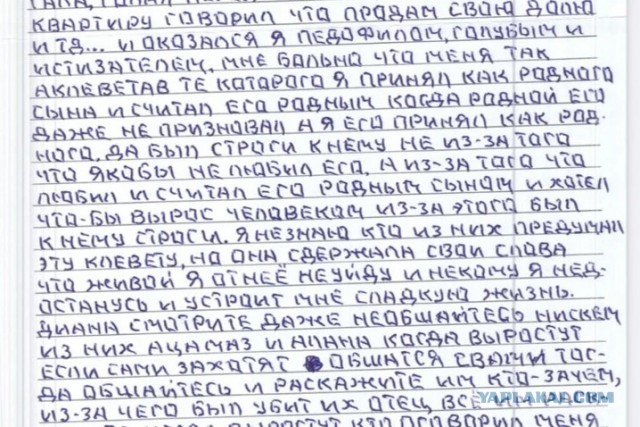 КВАРТИРУ ГОВОРИЛ ЧТО ПРОДАМ СВОЮ ДОЛЮ
И ТД... И ОКАЗАЛСЯ Я ПЕДОФИЛОМ, ГОЛУБЫМ И
ИСТИЗАТЕЛЕМ, МНЕ БОЛЬНО ЧТО МЕНЯ ТАК
АКЛЕВЕТАВ ТЕ КОТОРОГО Я ПРИНЯЛ КАК РОДНОГО
СЫНА И СЧИТАЛ ЕГО РОДНЫМ КОГДА РОДНОЙ ЕГО
ДАЖЕ НЕ ПРИЗНОВАЛ А Я ЕГО ПРИНЯЛ КАК РОД-
НОГО, ДА БЫЛ СТРОГИ К НЕМУ НЕ ИЗ-ЗА ТОГО
ЧТО ЯКОБЫ НЕ ЛЮБИЛ ЕГО, А ИЗ-ЗА ТОГО ЧТО
ЛЮБИЛ И СЧИТАЛ ЕГО РОДНЫМ СЫНОМ И ХОТЕЛ
ЧТО-БЫ ВЫРОС ЧЕЛОВЕКОМ ИЗ-ЗА ЭТОГО БЫЛ
К НЕМУ СТРОГИ. Я НЕЗНАЮ КТО ИЗ НИХ ПРЕДУМАЛ
ЭТУ КЛЕВЕТУ, НО ОНА СДЕРЖАЛА СВОИ СЛОВА
ЧТО ЖИВОЙ Я ОТ НЕЁ НЕ УЙДУ И НЕКОМУ Я НЕД-
ОСТАНУСЬ И УСТРОИТ МНЕ СЛАДКУЮ ЖИЗНЬ.
ДИАНА СМОТРИТЕ ДАЖЕ НЕОБЩАЙТЕСЬ НИСКЕМ
ИЗ НИХ АЦАМАЗ И АЛАНА КОГДА ВЫРОСТУТ
ЕСЛИ САМИ ЗАХОТЯТ ОБЩАТСЯ СВАМИ ТОГ-
ДА ОБЩАЙТЕСЬ И РАСКАЖИТЕ ИМ КТО-ЗАЧЕМ,
ИЗ-ЗА ЧЕГО БЫЛ УБИТ ИХ ОТЕЦ, ВСЕ ИМ
ВЫРОСТУТ КТО ПОГОВОРИЛ МЕНЯ
YAPLAKAL.COM